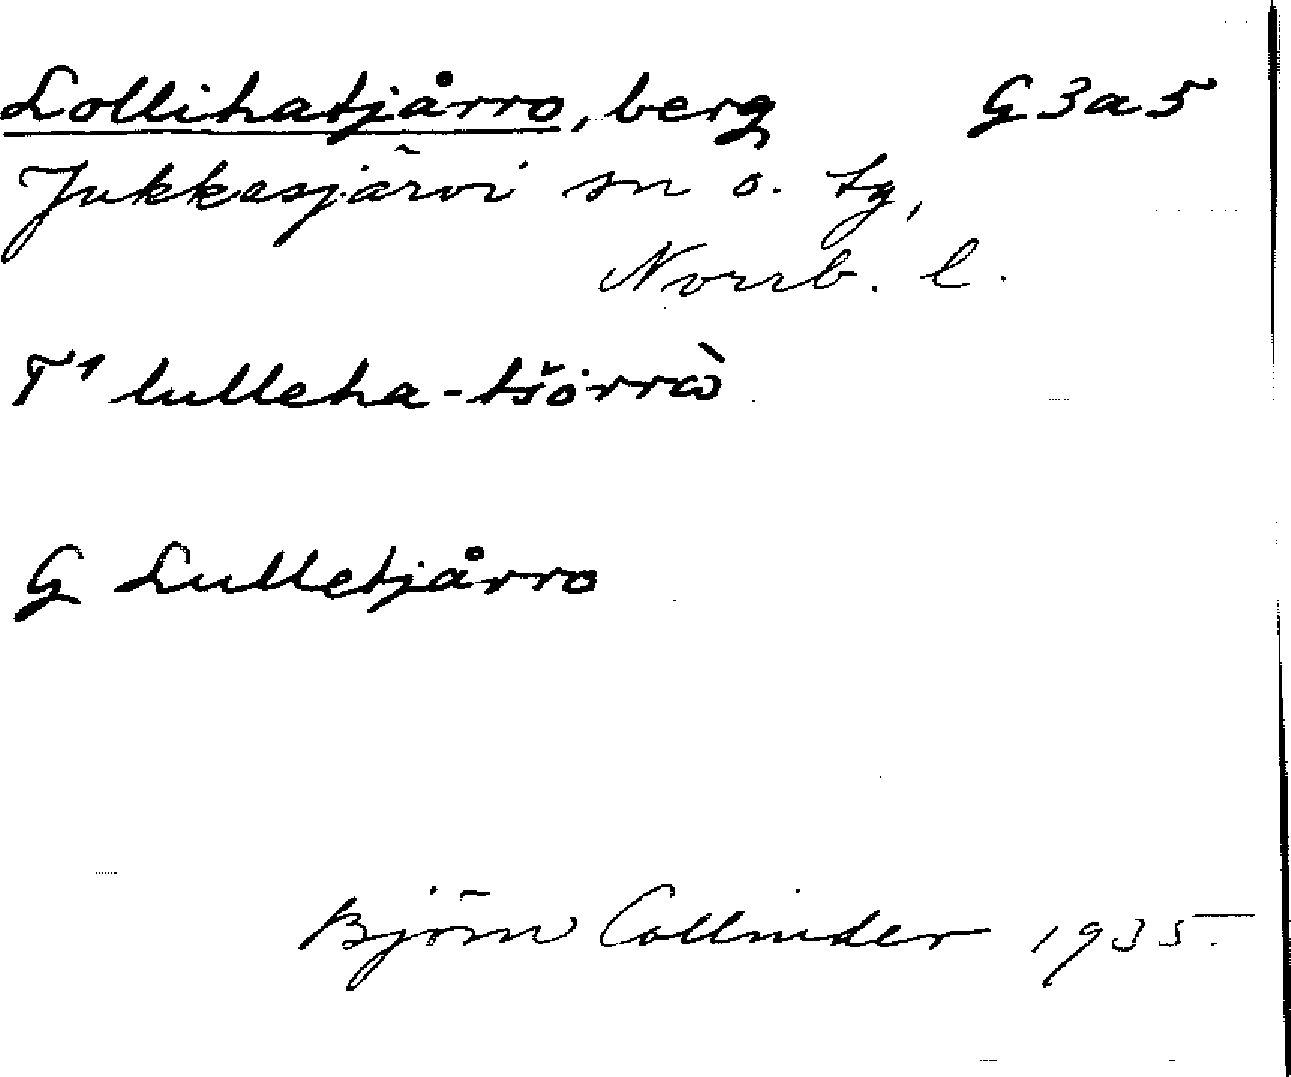 Lollihatjårro, berg G3a5
Jukkasjärvi sn o. tg,
Norrb. l.
T¹ lulleha-tšårrɷ̀
G Lulletjårro
Björn Collinder 1935.